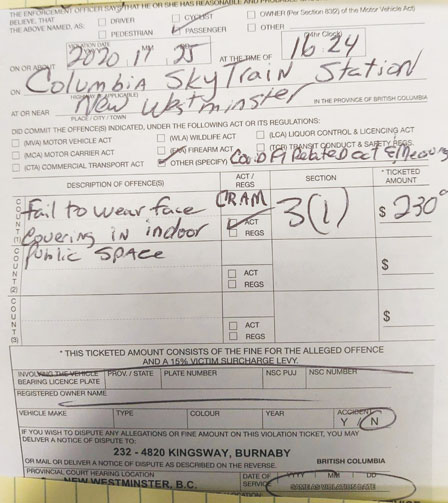 THE ENFORCEMENT OFFICER SAYS THAT HE OR SHE HAS REASONABLE AND
BELIEVE, THAT
THE ABOVE NAMED, AS
DRIVER
CYCLIST
OWNER (Per Section 83(2) of the Motor Vehicle Act)
PEDESTRIAN
PASSENGER
OTHER
VIOLATION DATE
MM
(24hr Clock)
ON OR ABOUT 2020 11 25 AT THE TIME OF 16:24
ON Columbia SkyTrain Station
AT OR NEAR New Westminster IN THE PROVINCE OF BRITISH COLUMBIA
PLACE / CITY / TOWN
DID COMMIT THE OFFENCE(S) INDICATED, UNDER THE FOLLOWING ACT OR ITS REGULATIONS:
(MVA) MOTOR VEHICLE ACT
(WLA) WILDLIFE ACT
(LCA) LIQUOR CONTROL & LICENCING ACT
(MCA) MOTOR CARRIER ACT
FIREARM ACT
(TCR) TRANSIT CONDUCT & SAFETY REGS.
(CTA) COMMERCIAL TRANSPORT ACT
OTHER (SPECIFY) Related act
DESCRIPTION OF OFFENCE(S)
ACT / REGS
SECTION
* TICKETED AMOUNT
COUNT (1)
fail to wear face
covering in indoor
public space
CRAM
ACT
REGS
3(1)
$ 230
COUNT (2)
ACT
REGS
$
COUNT (3)
ACT
REGS
$
* THIS TICKETED AMOUNT CONSISTS OF THE FINE FOR THE ALLEGED OFFENCE
AND A 15% VICTIM SURCHARGE LEVY.
INVOLVING THE VEHICLE
BEARING LICENCE PLATE
PROV. / STATE
PLATE NUMBER
NSC PUJ
NSC NUMBER
REGISTERED OWNER NAME
VEHICLE MAKE
TYPE
COLOUR
YEAR
ACCIDENT
Y / N
IF YOU WISH TO DISPUTE ANY ALLEGATIONS OR FINE AMOUNT ON THIS VIOLATION TICKET, YOU MAY
DELIVER A NOTICE OF DISPUTE TO:
232 - 4820 KINGSWAY, BURNABY
OR MAIL OR DELIVER A NOTICE OF DISPUTE AS DESCRIBED ON THE REVERSE.
BRITISH COLUMBIA
PROVINCIAL COURT HEARING LOCATION
NEW WESTMINSTER, B.C.
DATE OF
SERVICE
YYYY
MM
DD
SAME AS VIOLATION DATE